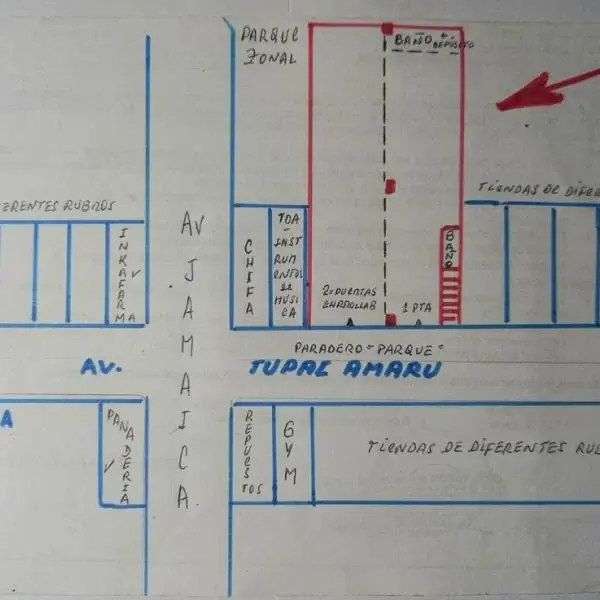 PARQUE
ZONAL
BAÑO +
DEPÓSITO
TIENDAS DE DIFER
ERENTES RUBROS
INKAFARMA
AV
JAMAICA.
CHIFA
TDA
-
INST
RUM
ENTOS
DE
MUSI
CA
BAÑO
2=PUERTAS
ENRROLLAB
1 PTA
PARADERO "PARQUE"
AV.
TUPAC AMARU
A
PANADERIA
REPUES
TOS
GYM
TIENDAS DE DIFERENTES RUB